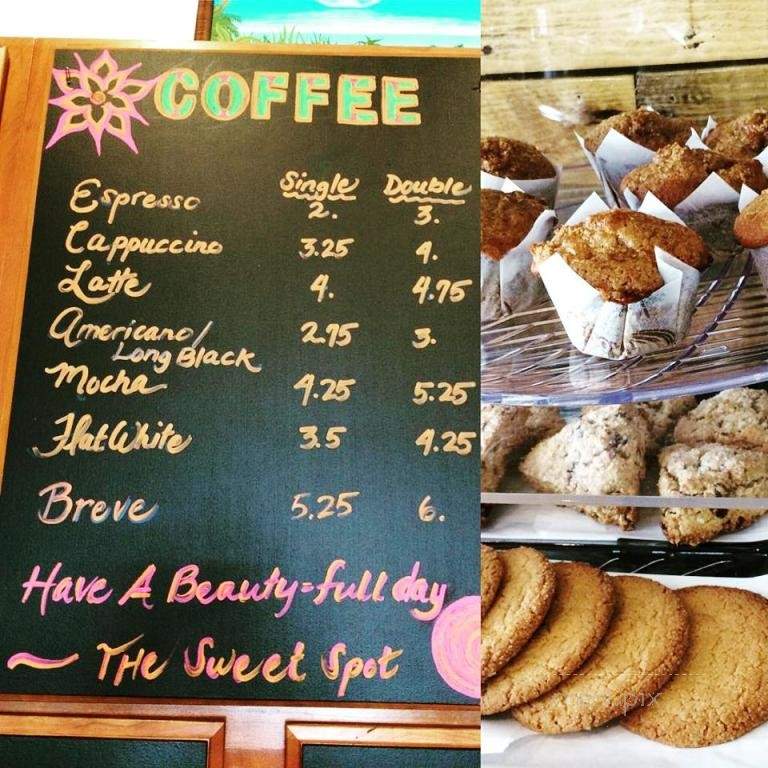 COFFEE
Single Double
Espresso 2. 3.
Cappuccino 3.25 4.
Latte 4. 4.75
Americano/ 2.75 3.
Long Black
Mocha 4.25 5.25
Flat White 3.5 4.25
Breve 5.25 6.
Have A Beauty-full day
~ THe Sweet Spot